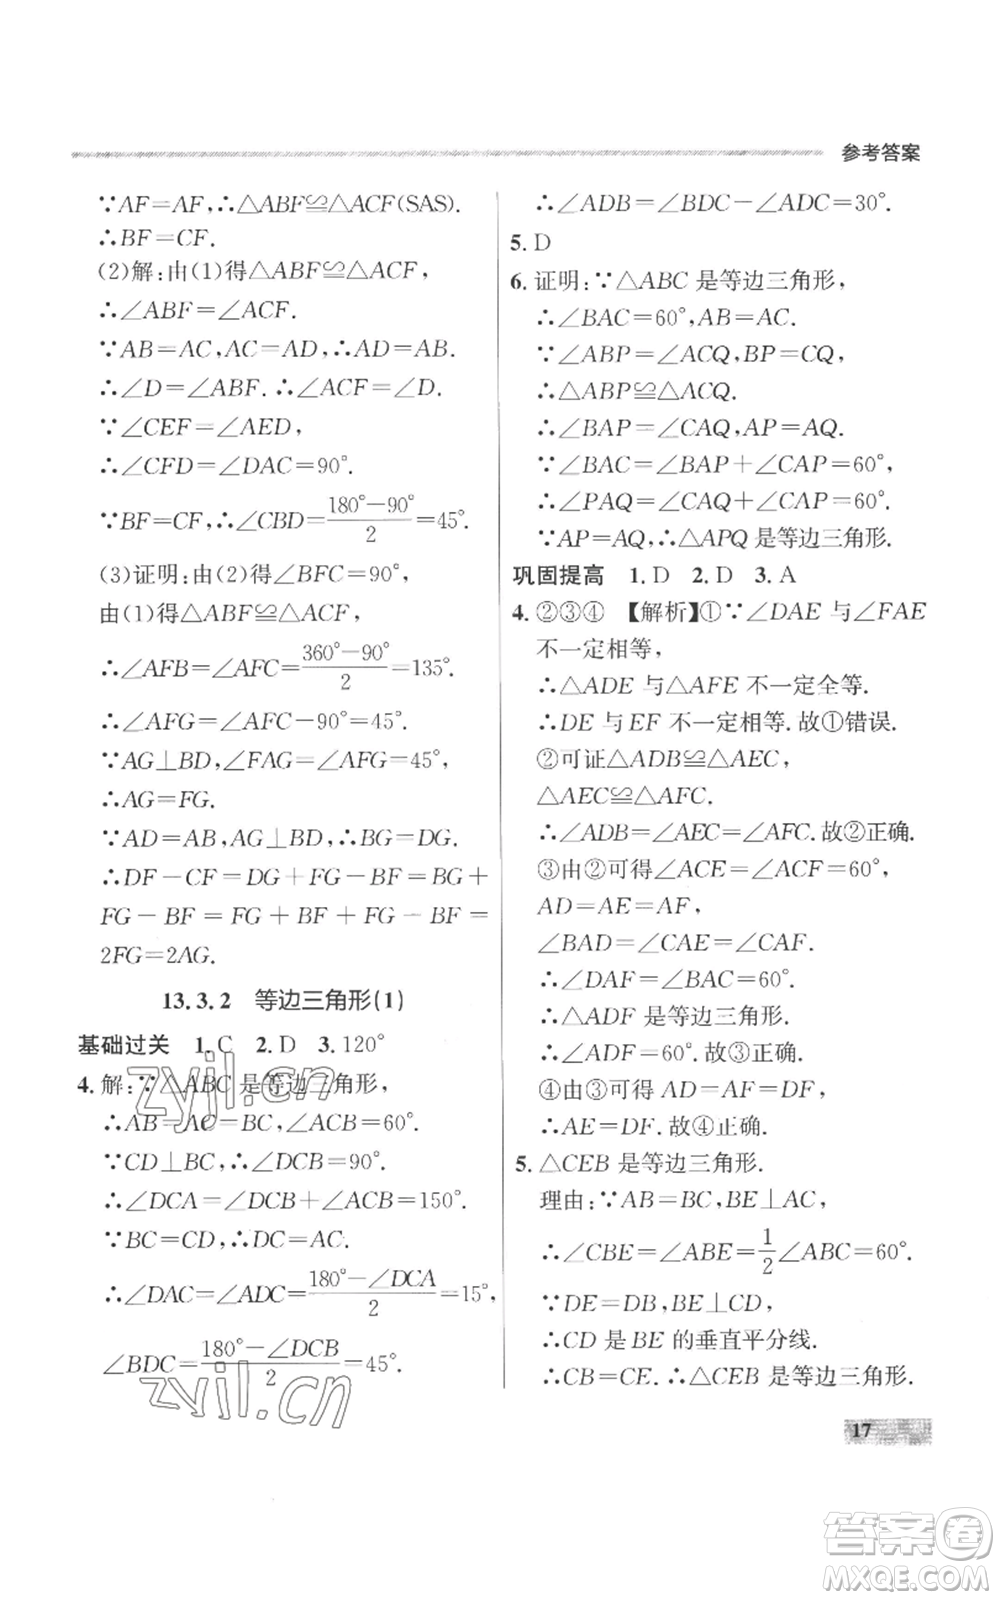 参考答案
∵AF=AF,∴△ABF≌△ACF(SAS).
∴BF=CF.
(2)解:由(1)得△ABF≌△ACF,
∴∠ABF=∠ACF.
∵AB=AC,AC=AD,∴AD=AB.
∴∠D=∠ABF.∴∠ACF=∠D.
∵∠CEF=∠AED,
∴∠CFD=∠DAC=90°.
∵BF=CF,∴∠CBD=(180°-90°)/2=45°.
(3)证明:由(2)得∠BFC=90°,
由(1)得△ABF≌△ACF,
∴∠AFB=∠AFC=(360°-90°)/2=135°.
∴∠AFG=∠AFC-90°=45°.
∵AG⊥BD,∠FAG=∠AFG=45°,
∴AG=FG.
∵AD=AB,AG⊥BD,∴BG=DG.
∴DF-CF=DG+FG-BF=BG+
FG-BF=FG+BF+FG-BF=
2FG=2AG.
13.3.2 等边三角形(1)
基础过关 1.C 2.D 3.120°
4.解:∵△ABC是等边三角形,
∴AB=AC=BC,∠ACB=60°.
∵CD⊥BC,∴∠DCB=90°.
∴∠DCA=∠DCB+∠ACB=150°.
∵BC=CD,∴DC=AC.
∴∠DAC=∠ADC=(180°-∠DCA)/2=15°,
∠BDC=(180°-∠DCB)/2=45°.
∴∠ADB=∠BDC-∠ADC=30°.
5.D
6.证明:∵△ABC是等边三角形,
∴∠BAC=60°,AB=AC.
∵∠ABP=∠ACQ,BP=CQ,
∴△ABP≌△ACQ.
∴∠BAP=∠CAQ,AP=AQ.
∵∠BAC=∠BAP+∠CAP=60°,
∴∠PAQ=∠CAQ+∠CAP=60°.
∵AP=AQ,∴△APQ是等边三角形.
巩固提高 1.D 2.D 3.A
4.②③④ 【解析】①∵∠DAE与∠FAE
不一定相等,
∴△ADE与△AFE不一定全等.
∴DE与EF不一定相等.故①错误.
②可证△ADB≌△AEC,
△AEC≌△AFC.
∴∠ADB=∠AEC=∠AFC.故②正确.
③由②可得∠ACE=∠ACF=60°,
AD=AE=AF,
∠BAD=∠CAE=∠CAF.
∴∠DAF=∠BAC=60°.
∴△ADF是等边三角形.
∴∠ADF=60°.故③正确.
④由③可得AD=AF=DF,
∴AE=DF.故④正确.
5.△CEB是等边三角形.
理由:∵AB=BC,BE⊥AC,
∴∠CBE=∠ABE=1/2∠ABC=60°.
∵DE=DB,BE⊥CD,
∴CD是BE的垂直平分线.
∴CB=CE.∴△CEB是等边三角形.
17
zyjl.cn
zyjl.cn
答案圈
MXQE.COM